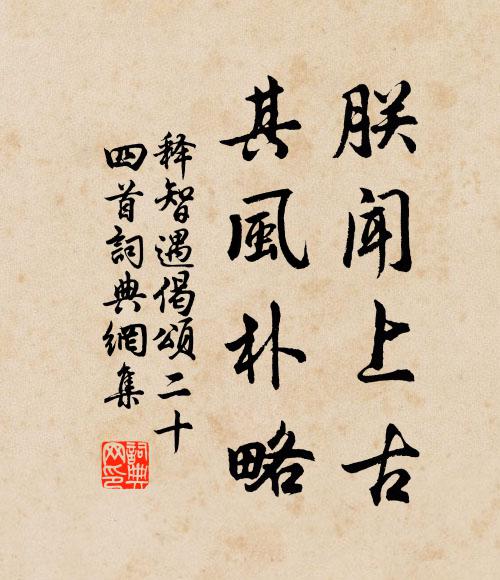 朕闻上古
其風朴略
释智遇偈頌二十
四首詞典網集
詞典网印